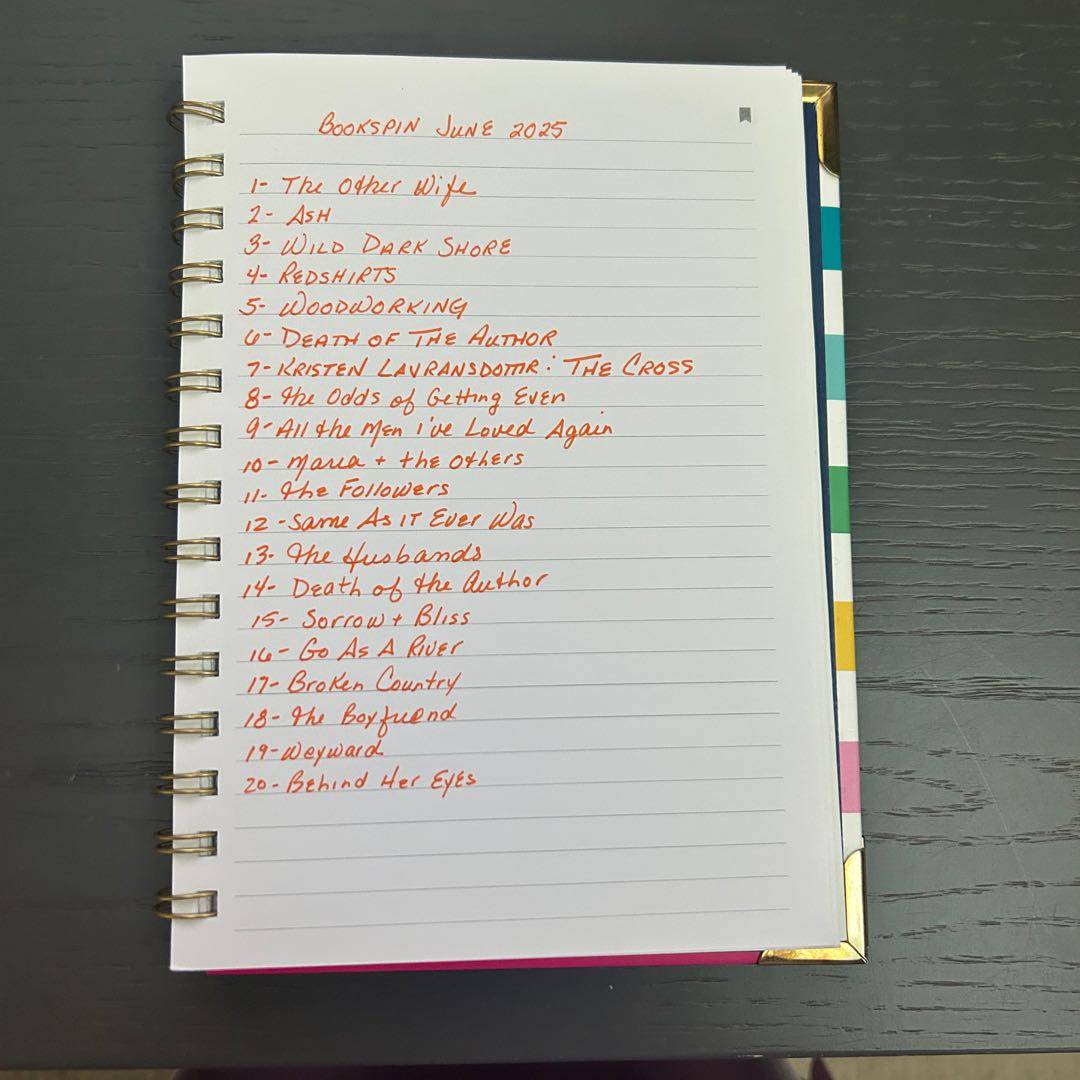 BOOKSPIN JUNE 2025
1- The Other Wife
2- ASH
3- WILD DARK SHORE
4- REDSHIRTS
5- WOODWORKING
6- DEATH OF THE AUTHOR
7- KRISTEN LAVRANSDOTTR: THE CROSS
8- The Odds of Getting Even
9- All the Men i've Loved Again
10- Maria + the Others
11- The Followers
12- Same As IT Ever Was
13- The Husbands
14- Death of the Author
15- Sorrow + Bliss
16- Go As A River
17- Broken Country
18- The Boyfriend
19- Weyward
20- Behind Her Eyes